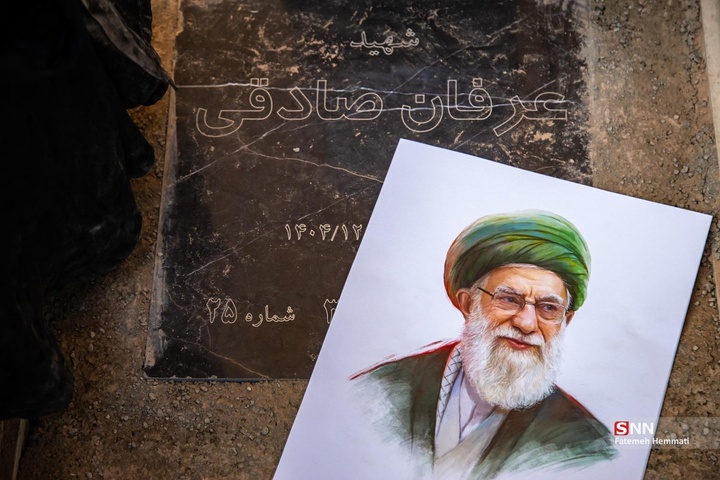 شهید
عرفان صادقی
۱۴۰۴/۱۲
شماره ۲۵
SNN
Fatemeh Hemmati